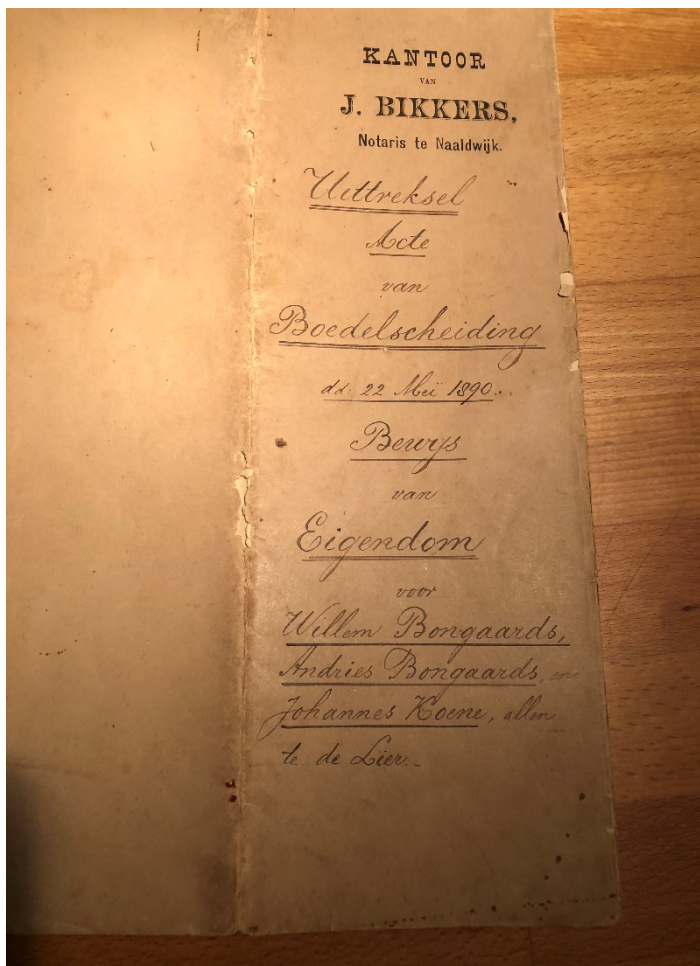 KANTOOR
VAN
J. BIKKERS,
Notaris te Naaldwijk.
Uittreksel
Acte
van
Boedelscheiding
dd. 22 Meï 1890.
Bewys
van
Eigendom
voor
Willem Bongaards,
Andries Bongaards, en
Johannes Koene, allen
te de Lier.